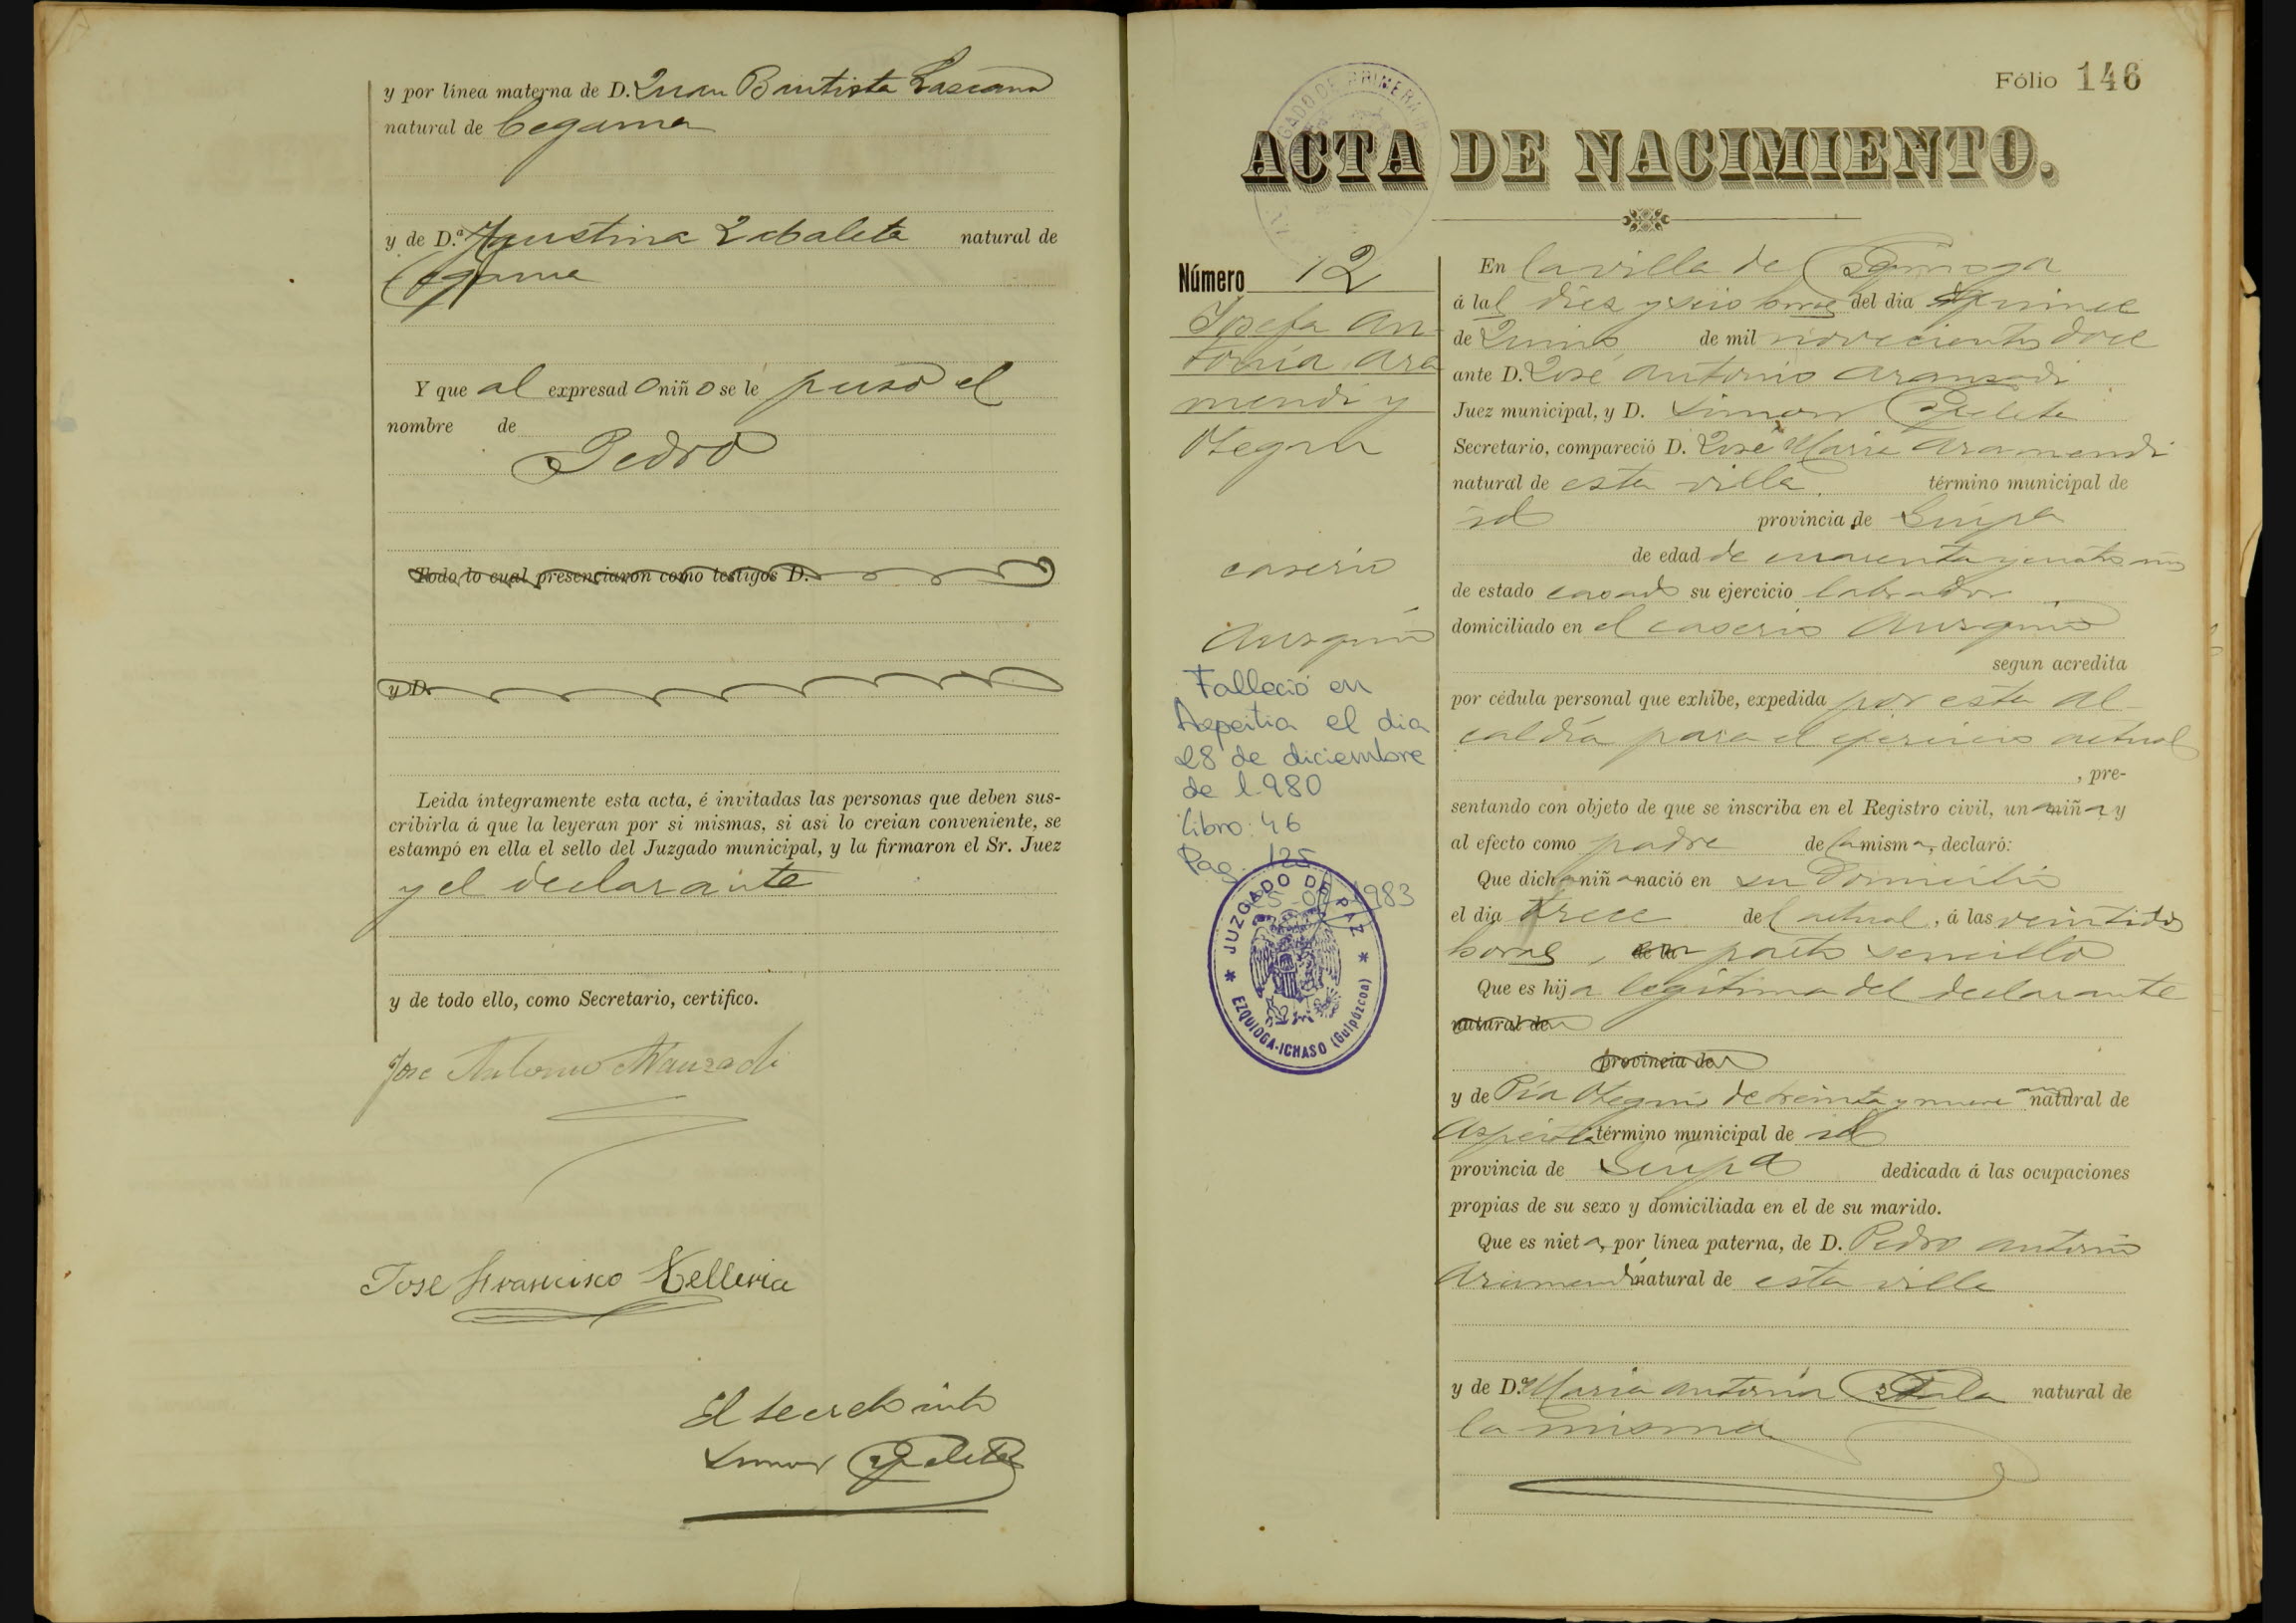 y por línea materna de D. Juan Bautista Lascano
natural de Cegama
y de D.ª Agustina Zabaleta natural de
Cegama
Y que al expresado niño se le puso el
nombre de
Pedro
Todo lo cual presenciaron como testigos D.
y D.
Leida íntegramente esta acta, é invitadas las personas que deben sus-
cribirla á que la leyeran por si mismas, si asi lo creian conveniente, se
estampó en ella el sello del Juzgado municipal, y la firmaron el Sr. Juez
y el declarante
y de todo ello, como Secretario, certifico.
Jose Antonio Aranzadi
Jose Francisco Telleria
El secretario
Simon
Fólio 146
ACTA DE NACIMIENTO.
Número 12
Josefa An-
tonia Ara
mendi y
Otegui
caserio
Falleció en
Azpeitia el dia
28 de diciembre
de 1.980
libro: 46
Pag. 125
1983
* JUZGADO DE PAZ *
EZQUIOGA-ICHASO (Guipúzcoa)
JUZGADO DE PRIMERA
En la villa de Ezquioga
á las diez y seis horas del dia quince
de Junio de mil novecientos doce
ante D. José Antonio Aranzadi
Juez municipal, y D. Simon
Secretario, compareció D. José Maria Aramendi
natural de esta villa, término municipal de
id provincia de Guipa
de edad de cuarenta y cuatro años
de estado casado su ejercicio labrador
domiciliado en el caserio
segun acredita
por cédula personal que exhibe, expedida por esta Al-
caldía para el ejercicio actual
, pre-
sentando con objeto de que se inscriba en el Registro civil, una niña, y
al efecto como padre de la misma, declaró:
Que dicha niña nació en su domicilio
el dia trece del actual, á las veintidos
horas, en parto sencillo
Que es hija legítima del declarante
natural de
provincia de
y de Pía Otegui de treinta y nueve años natural de
Azpeitia término municipal de id
provincia de Guipa dedicada á las ocupaciones
propias de su sexo y domiciliada en el de su marido.
Que es nieta, por línea paterna, de D. Pedro Antonio
Aramendi natural de esta villa
y de D.ª Maria Antonia natural de
la misma